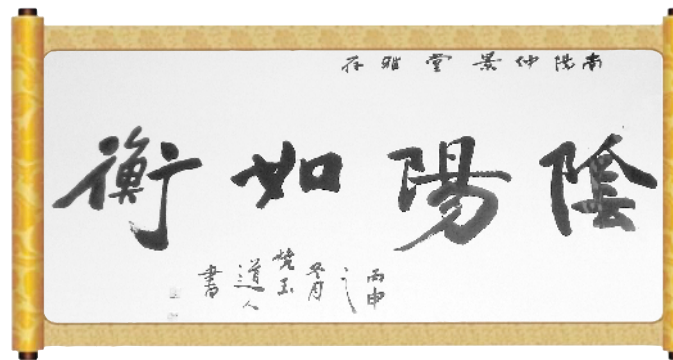 南陽仲景堂雅存
陰陽如衡
丙申
之
冬月
燒玉
道人
書